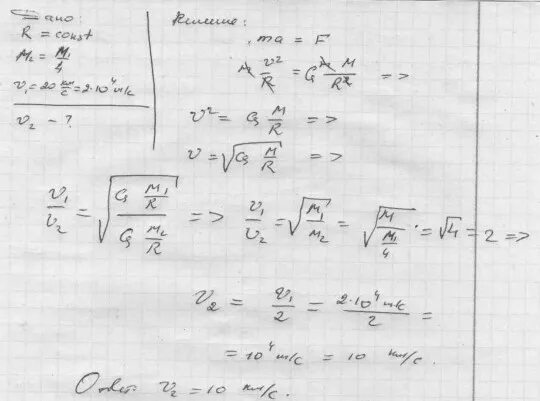 Дано:
R = const
M₂ = M₁/4
v₁ = 20 км/с = 2·10⁴ м/с
v₂ - ?
Решение:
ma = F
m v²/R = G m M/R² =>
v² = G M/R =>
v = √(G M/R) =>
v₁/v₂ = √((G M₁/R)/(G M₂/R)) => v₁/v₂ = √(M₁/M₂) = √(M/(M₁/4)) = √4 = 2 =>
v₂ = v₁/2 = 2·10⁴ м/с / 2 =
= 10⁴ м/с = 10 км/с.
Ответ: v₂ = 10 км/с.